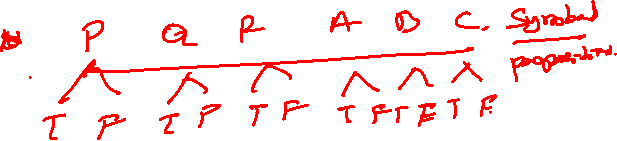 P Q R A B C. Symbol
propos
T F T F T F T F T F T F